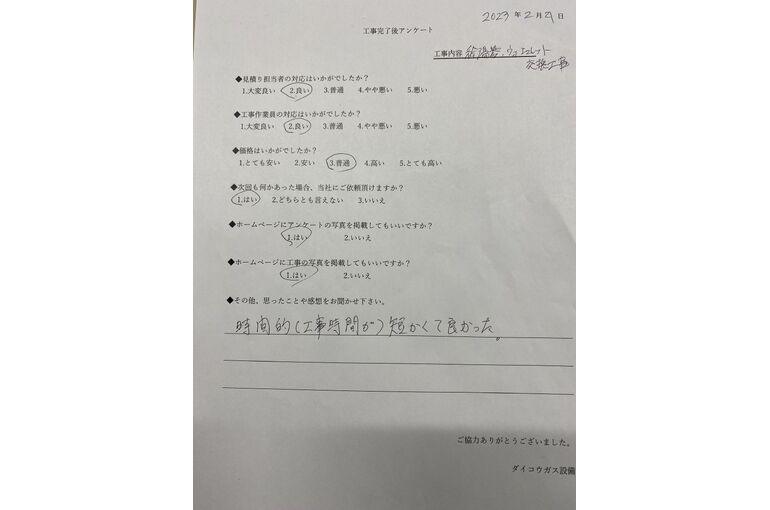 2023年2月21日
工事完了後アンケート
工事内容 給湯器、ウォシュレット
交換工事
◆見積り担当者の対応はいかがでしたか？
1.大変良い 2.良い 3.普通 4.やや悪い 5.悪い
◆工事作業員の対応はいかがでしたか？
1.大変良い 2.良い 3.普通 4.やや悪い 5.悪い
◆価格はいかがでしたか？
1.とても安い 2.安い 3.普通 4.高い 5.とても高い
◆次回も何かあった場合、当社にご依頼頂けますか？
1.はい 2.どちらとも言えない 3.いいえ
◆ホームページにアンケートの写真を掲載してもいいですか？
1.はい 2.いいえ
◆ホームページに工事の写真を掲載してもいいですか？
1.はい 2.いいえ
◆その他、思ったことや感想をお聞かせ下さい。
時間的(工事時間が)短かくて良かった。
ご協力ありがとうございました。
ダイコウガス設備